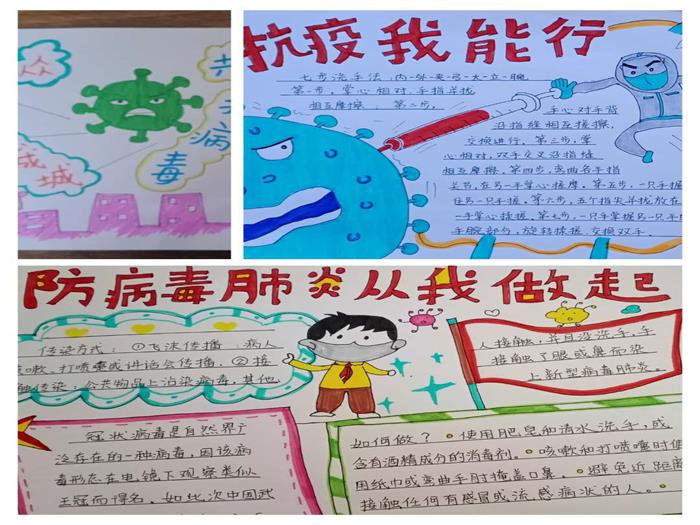 众
成城
病
毒
抗疫我能行
七步洗手法:内-外-夹-弓-大-立-腕
第一步,掌心相对,手指并拢
相互摩擦, 第二步,
手心对手背
沿指缝相互搓擦,
交换进行,第三步,掌
心相对,双手交叉沿指缝
相互摩擦,第四步,弯曲各手指
关节,在另一手掌心揉摩。第五步,一只手握
住另一只手搓。第六步,五个指尖并拢放在
一手掌心揉搓,第七步,一只手掌握另一只手
手腕部分,旋转揉搓,交换双手.
防病毒肺炎从我做起
传染方式:①飞沫传播:病人
咳嗽、打喷嚏或讲话会传播.②接
触传染:公共物品上沾染病毒,其他
人接触,并且没洗手,手
接触了眼或鼻而染
上新型病毒肺炎。
冠状病毒是自然界广
泛存在的一种病毒,因该病
毒形态在电镜下观察类似
王冠而得名。如此次中国武
如何做?使用肥皂和清水洗手,或
含有酒精成分的消毒剂。咳嗽和打喷嚏时使
用纸巾或弯曲手肘掩盖口鼻。避免近距离
接触任何有感冒或流感病状的人。